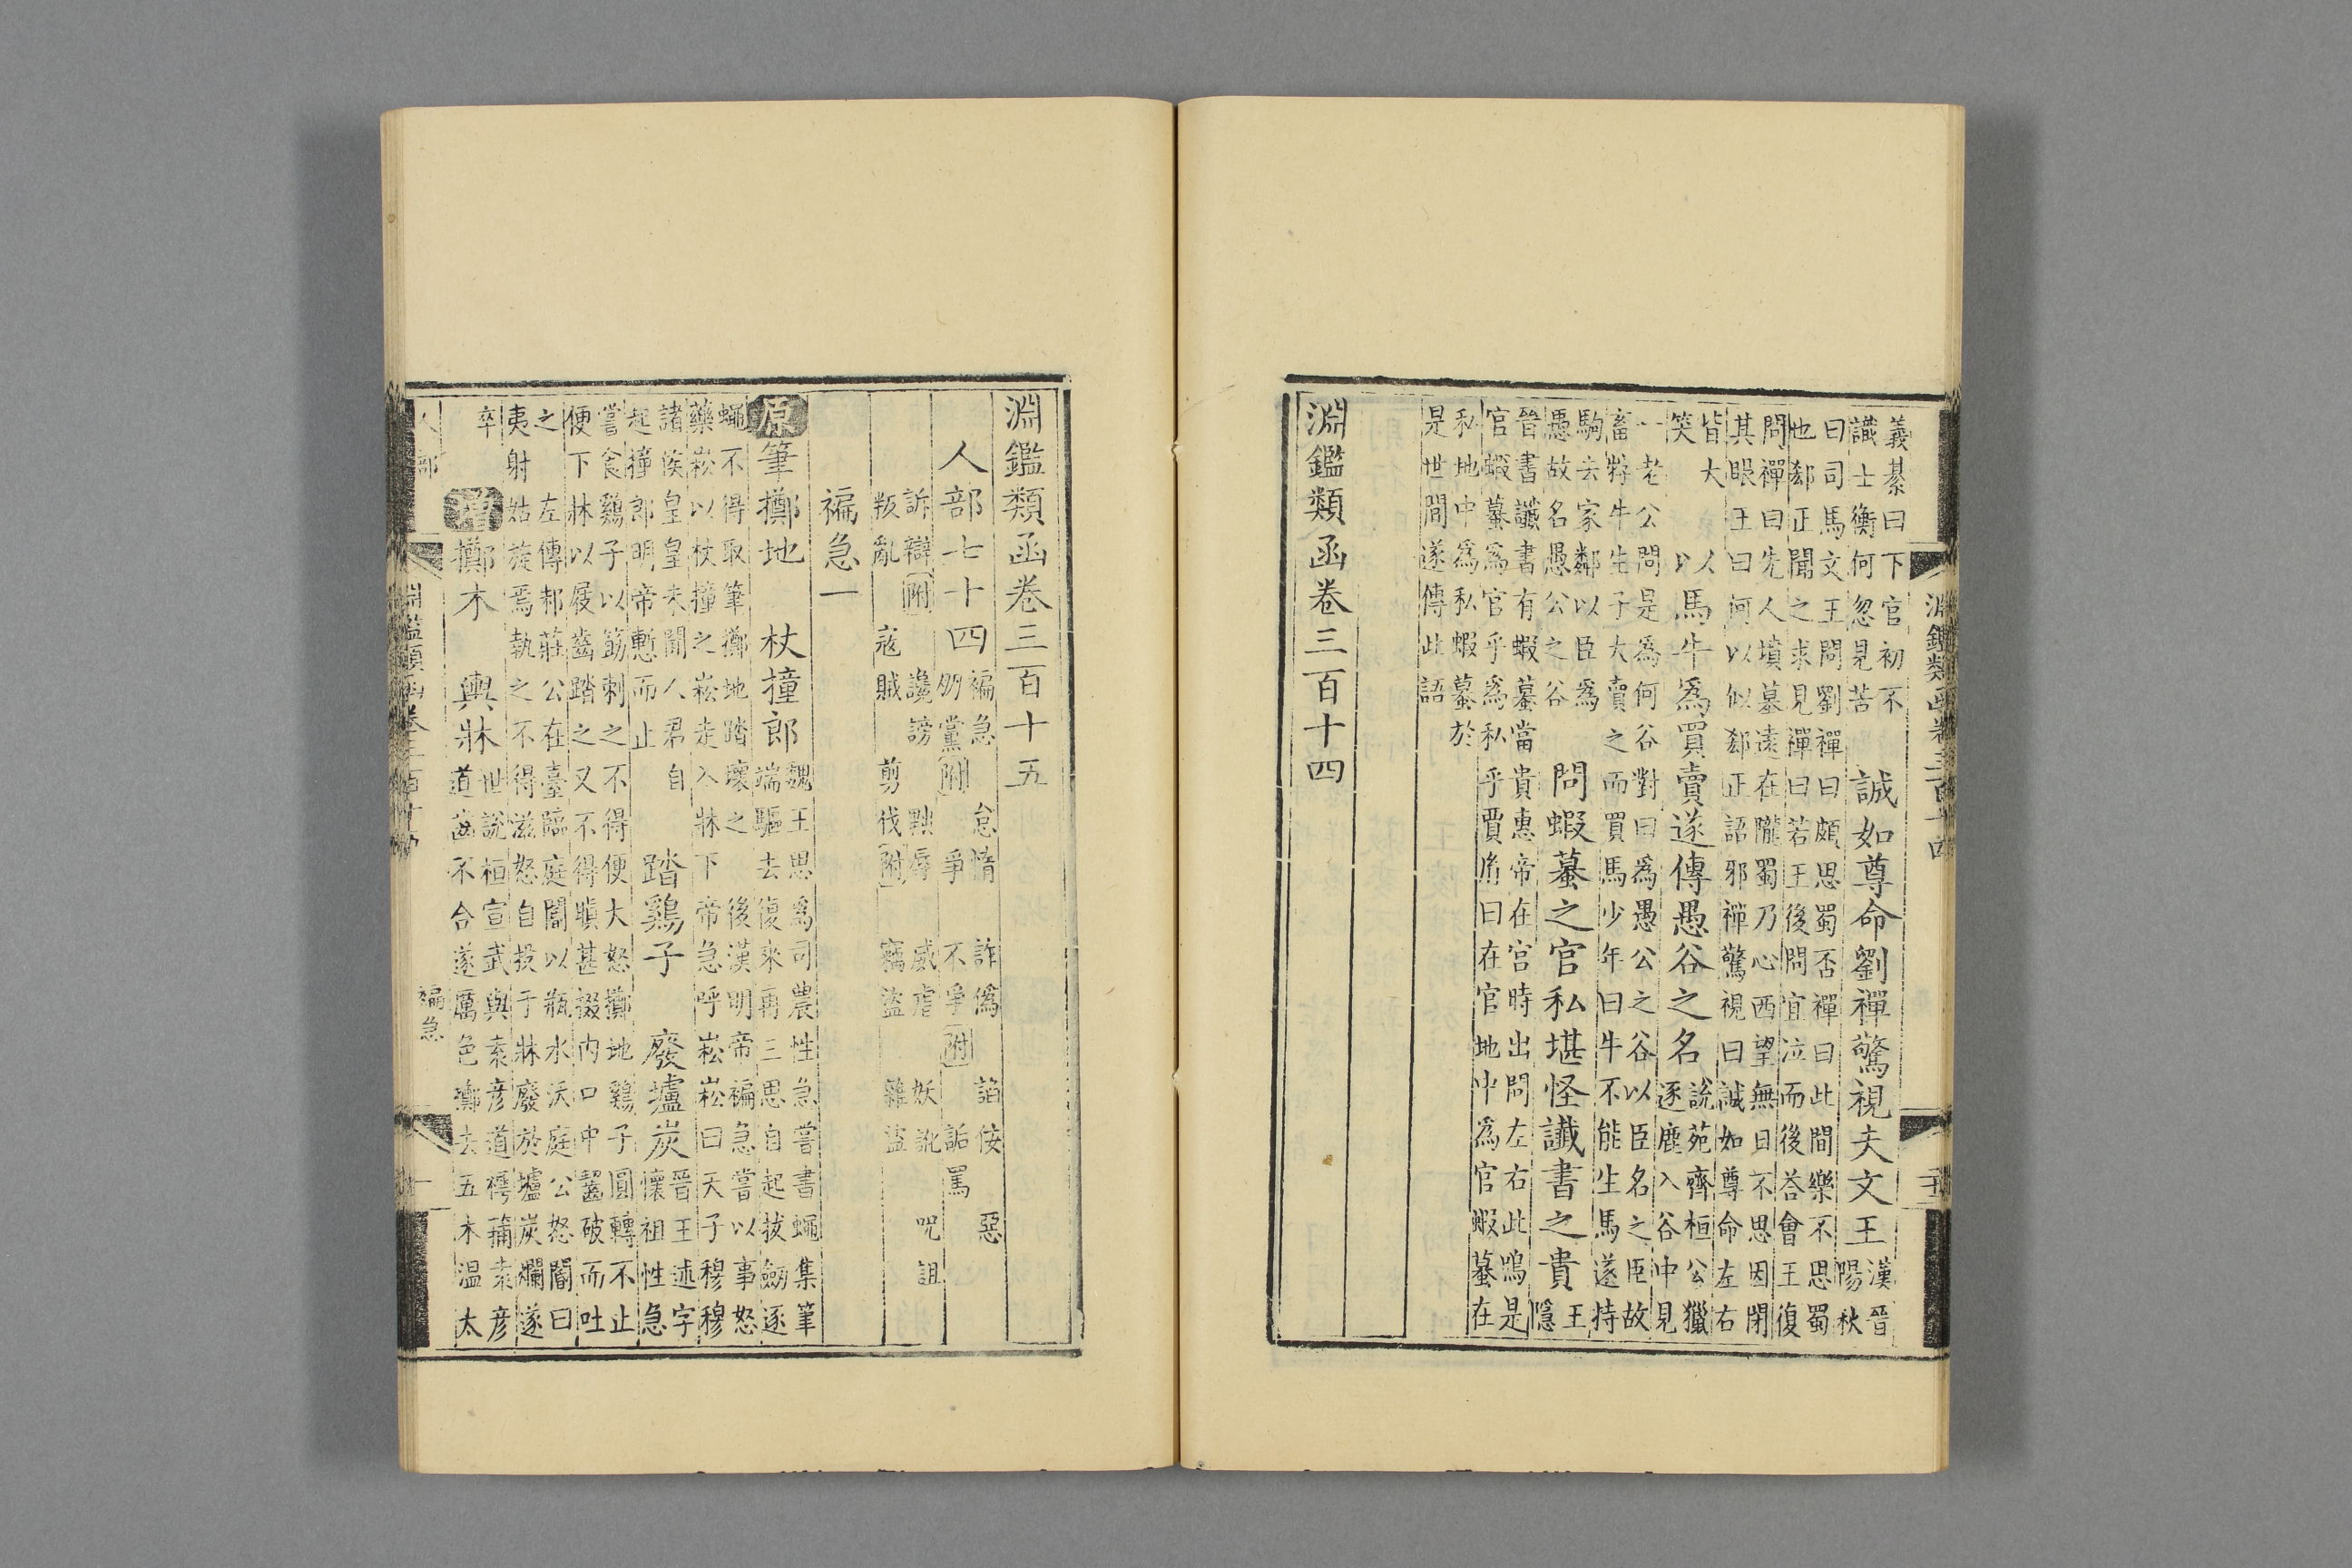 淵鑑類函卷三百十四 二十
義綦曰下官初不
識士衡何忽見苦
誠如尊命劉禪驚視夫文王
漢晉
陽秋
曰司馬文王問劉禪曰頗思蜀否禪曰此間樂不思蜀
也郄正聞之求見禪曰若王後問宜泣而後荅會王復
問禪曰先人墳墓遠在隴蜀乃心西望無日不思因閉
其眼王曰何以似郄正語邪禪驚視曰誠如尊命左右
皆大
笑
以馬牛爲買賣遂傳愚谷之名
說苑齊桓公獵
逐鹿入谷中見
一老公問是爲何谷對曰爲愚公之谷以臣名之臣故
畜牸牛生子大賣之而買馬少年曰牛不能生馬遂持
駒去家鄰以臣爲
愚故名愚公之谷
問蝦蟇之官私堪怪讖書之貴
王
隱
晉書讖書有蝦蟇當貴惠帝在宫時出問左右此嗚是
官蝦蟇爲官乎爲私乎賈胤曰在官地中爲官蝦蟇在
私地中爲私蝦蟇於
是世間遂傳此語
淵鑑類函卷三百十四
淵鑑類函卷三百十五
人部七十四
褊急 怠惰 詐僞 諂佞 惡
朋黨附 爭 不爭附 詬罵
訴辯附 讒謗 黜辱 威虐 妖訛 呪詛
叛亂 寇賊 剪伐附 竊盜 雜盜
褊急一
原筆擲地 杖撞郎
魏王思爲司農性急嘗書蠅集筆
端驅去復來再三思自起拔劒逐
蠅不得取筆擲地踏壞之 後漢明帝褊急嘗以事怒
藥崧以杖撞之崧走入牀下帝急呼崧崧曰天子穆穆
諸侯皇皇未聞人君自
起撞郎明帝慙而止
踏鷄子 廢壚炭
晉王述字
懷祖性急
嘗食鷄子以筯刺之不得便大怒擲地鷄子圓轉不止
便下牀以屐齒踏之又不得瞋甚掇内口中齧破而吐
之 左傳邾莊公在臺臨庭閽以瓶水沃庭公怒閽曰
夷射姑旋焉執之不得滋怒自投于牀廢於壚炭爛遂
卒
增擲木 輿牀
世說桓宣武與袁彦道樗蒱袁彦
道齒不合遂厲色擲去五木温太
人部 淵鑑類函卷三百十五 褊急 一